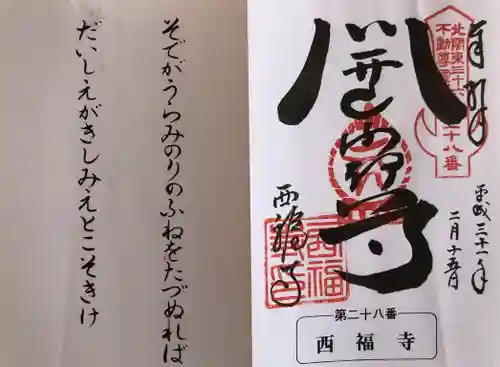 奉拝
北関東三十六
不動尊
二十八番
平成三十一年
二月十五日
西福寺
西福
第二十八番
西福寺
そでがうらみのりのふねをたづぬれば
だいしえがきしみえとこそきけ